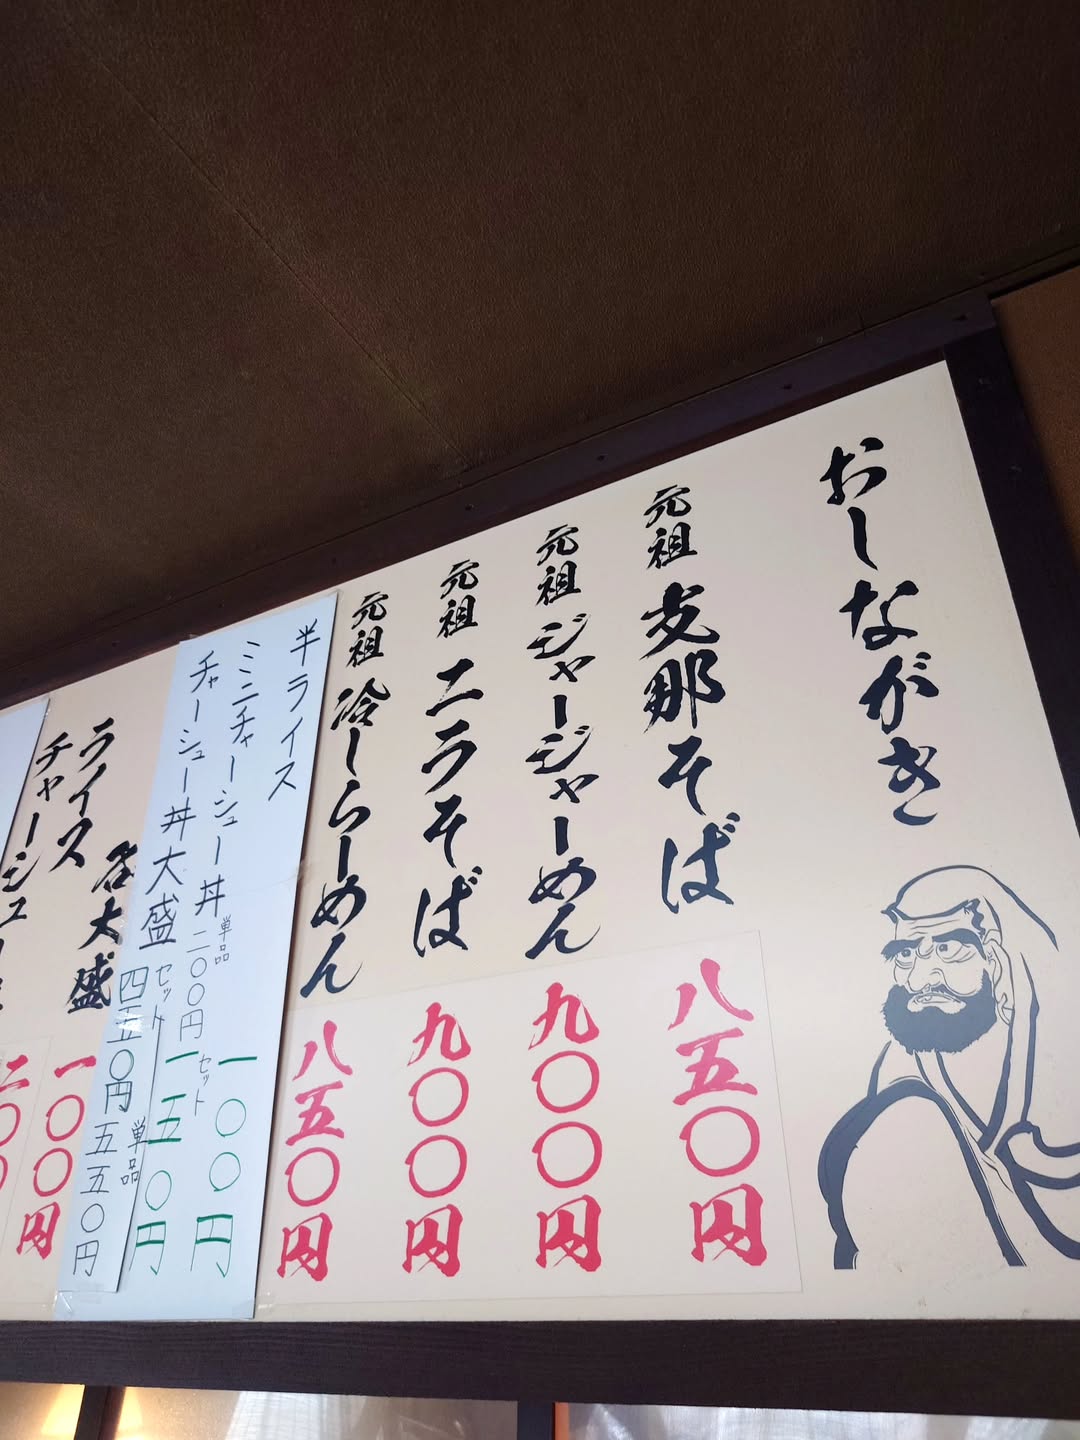 おしながき
元祖 支那そば 八五〇円
元祖 ジャージャーめん 九〇〇円
元祖 ニラそば 九〇〇円
元祖 冷しらーめん 八五〇円
半ライス 一〇〇円
ミニチャーシュー丼 単品 二〇〇円 セット 一五〇円
チャーシュー丼大盛 セット 四五〇円 単品 五五〇円
各大盛 一〇〇円
ライス 二〇〇
チャーシュー